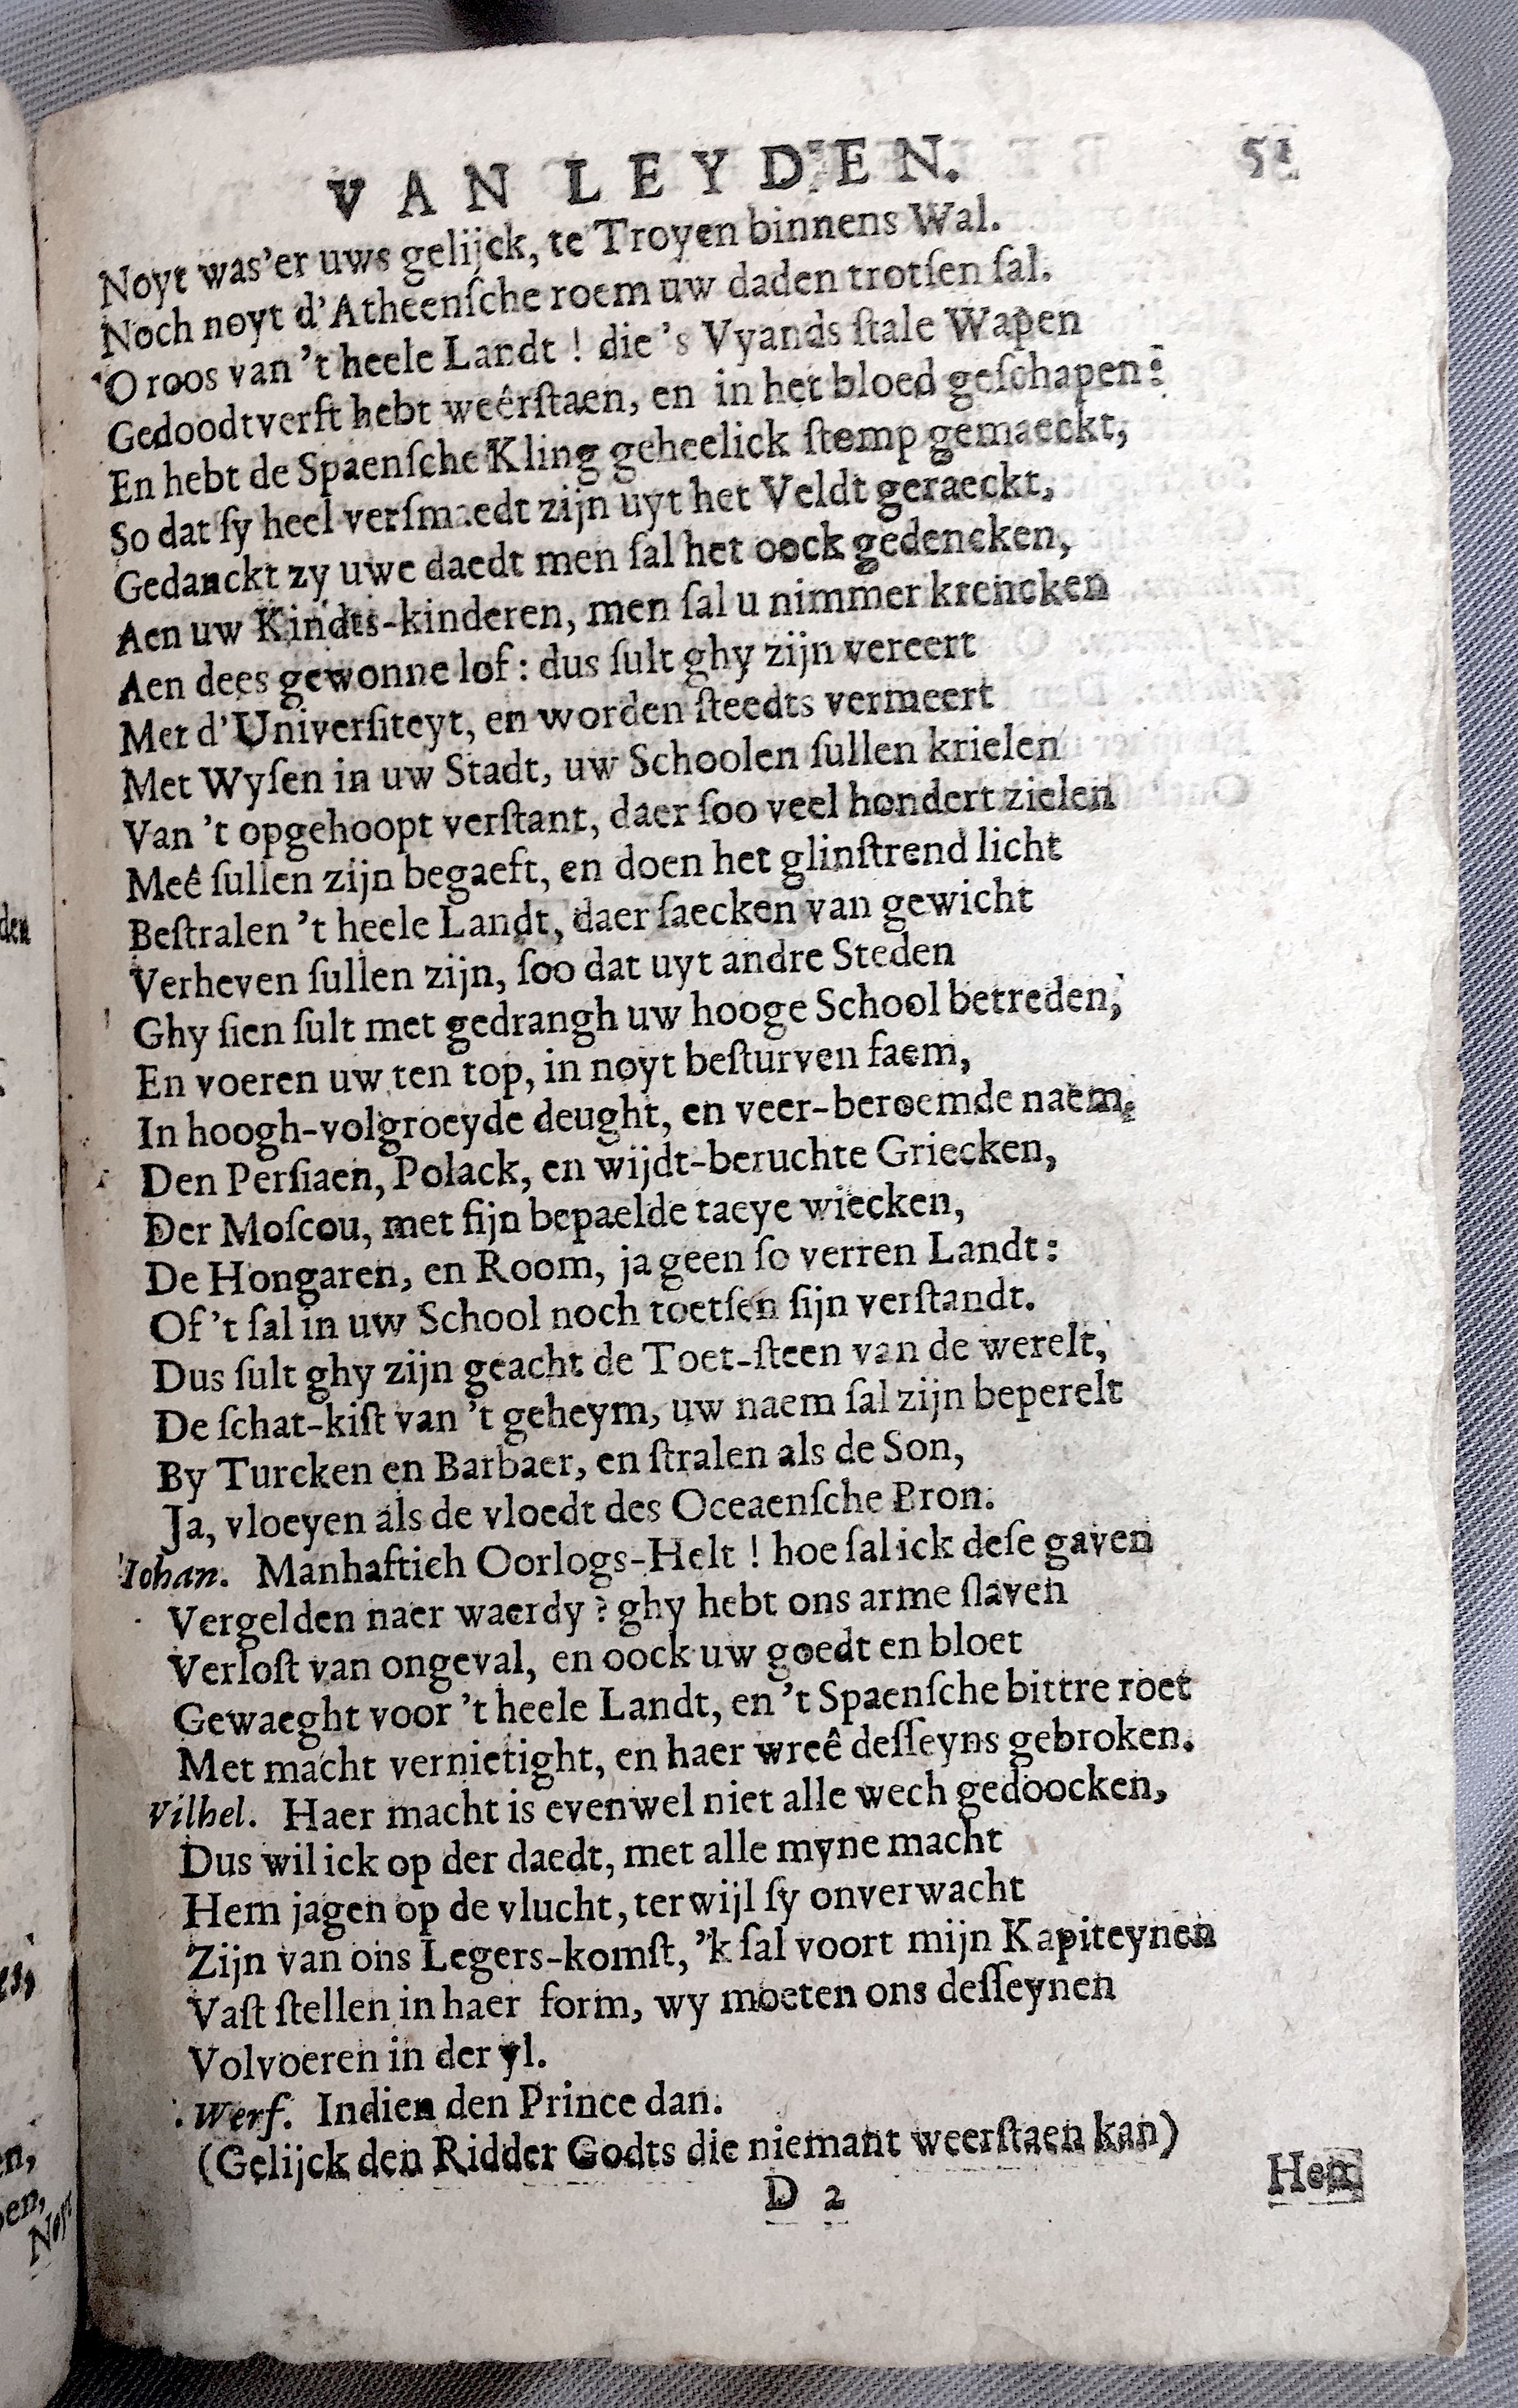 VAN LEYDEN. 51
Noyt was'er uws gelijck, te Troyen binnens Wal.
Noch noyt d'Atheenſche roem uw daden trotſen ſal.
O roos van 't heele Landt ! die 's Vyands ſtale Wapen
Gedoodtverft hebt weêrſtaen, en in het bloed geſchapen:
En hebt de Spaenſche Kling geheelick ſtomp gemaeckt,
So dat ſy heel verſmaedt zijn uyt het Veldt geraeckt,
Gedanckt zy uwe daedt men ſal het oock gedencken,
Aen uw Kindts-kinderen, men ſal u nimmer krencken
Aen dees gewonne lof : dus ſult ghy zijn vereert
Met d'Univerſiteyt, en worden ſteedts vermeert
Met Wyſen in uw Stadt, uw Schoolen ſullen krielen
Van 't opgehoopt verſtant, daer ſoo veel hondert zielen
Meê ſullen zijn begaeft, en doen het glinſtrend licht
Beſtralen 't heele Landt, daer ſaecken van gewicht
Verheven ſullen zijn, ſoo dat uyt andre Steden
Ghy ſien ſult met gedrangh uw hooge School betreden,
En voeren uw ten top, in noyt beſturven faem,
In hoogh-volgroeyde deught, en veer-beroemde naem.
Den Perſiaen, Polack, en wijdt-beruchte Griecken,
Der Moſcou, met ſijn bepaelde taeye wiecken,
De Hongaren, en Room, ja geen ſo verren Landt :
Of 't ſal in uw School noch toetſen ſijn verſtandt.
Dus ſult ghy zijn geacht de Toet-ſteen van de werelt,
De ſchat-kiſt van 't geheym, uw naem ſal zijn beperelt
By Turcken en Barbaer, en ſtralen als de Son,
Ja, vloeyen als de vloedt des Oceaenſche Bron.
Iohan. Manhaftich Oorlogs-Helt ! hoe ſal ick deſe gaven
Vergelden naer waerdy ? ghy hebt ons arme ſlaven
Verloſt van ongeval, en oock uw goedt en bloet
Gewaeght voor 't heele Landt, en 't Spaenſche bittre roet
Met macht vernietight, en haer wreê deſſeyns gebroken.
Vilhel. Haer macht is evenwel niet alle wech gedoocken,
Dus wil ick op der daedt, met alle myne macht
Hem jagen op de vlucht, terwijl ſy onverwacht
Zijn van ons Legers-komſt, 'k ſal voort mijn Kapiteynen
Vaſt ſtellen in haer form, wy moeten ons deſſeynen
Volvoeren in der yl.
Werf. Indien den Prince dan.
(Gelijck den Ridder Godts die niemant weerſtaen kan)
D 2 Hem
den
en,
Noyt